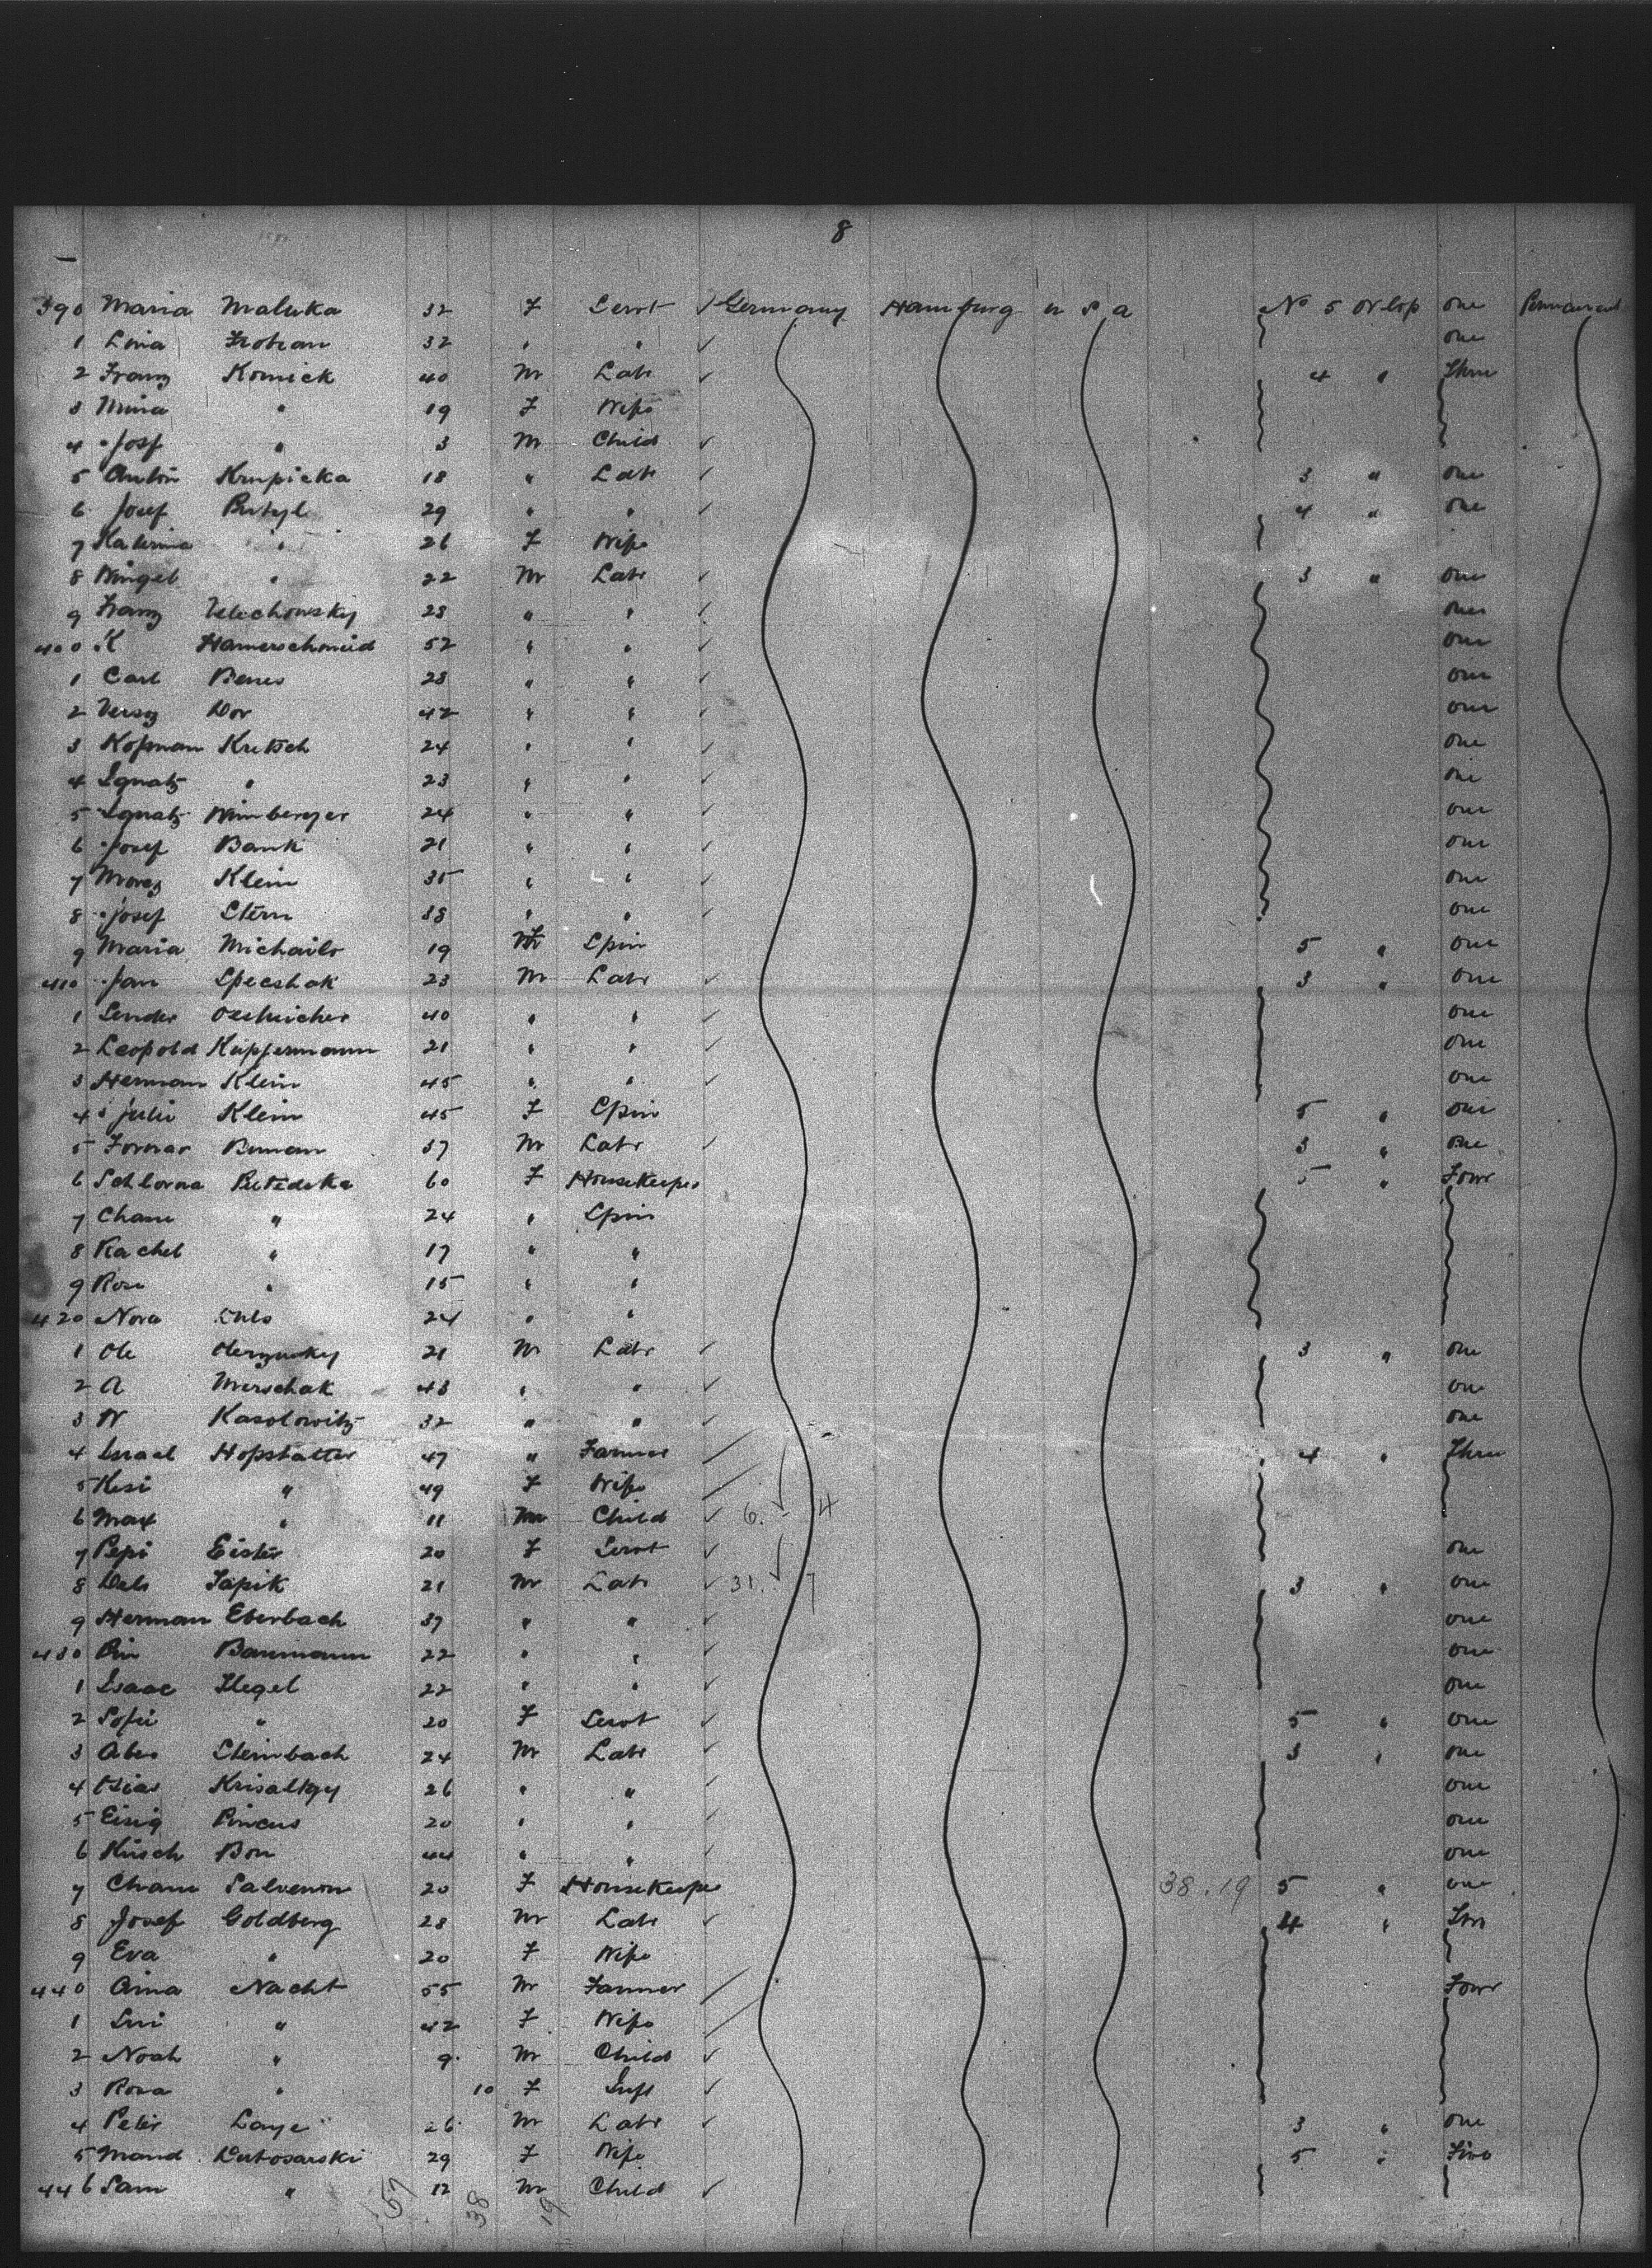 8
390 Maria Maluka 32 F Servt ✓ Germany Hamburg U S A No 5 W lop one Permanent
1 Lina 32 " " ✓ one
2 Franz Komick 40 M Labr ✓ 4 " Three
3 Mina " 19 F Wife
4 Josf " 3 M Child ✓
5 Anton Krupicka 18 " Labr ✓ 3 " one
6 Josef 29 " " ✓ 4 " one
7 Katerina " 26 F Wife
8 " 22 M Labr ✓ 3 " one
9 Franz 28 " " ✓ one
400 K Hamerschmeid 52 " " ✓ one
1 Carl Benes 28 " " ✓ one
2 42 " " ✓ one
3 Kofman Kretsch 24 " " ✓ one
4 Ignatz " 23 " " ✓ one
5 Ignatz Wimberger 24 " " ✓ one
6 Josef Bank 21 " " ✓ one
7 Klein 35 " " ✓ one
8 Josef Stern 38 " " ✓ one
9 Maria Michailo 19 F Spin 5 " one
410 Jan Speeshak 23 M Labr ✓ 3 " one
1 Sender 40 " " ✓ one
2 Leopold Kupfermann 21 " " ✓ one
3 Herman Klein 45 " " ✓ one
4 Juli Klein 45 F Spin 5 " one
5 37 M Labr ✓ 3 " one
6 60 F Housekeeper 5 " Four
7 Chane " 24 " Spin
8 Rachel " 17 " "
9 Rosa " 15 " "
420 Nova 24 " "
1 Ole 21 M Labr ✓ 3 " one
2 A 43 " " ✓ one
3 W Kasolowitz 32 " " ✓ one
4 Israel Hopstatter 47 " Farmer 4 " Three
5 Resi " 49 F Wife
6 Max " 11 M Child ✓ 6. 4
7 Pepi Eister 20 F Servt ✓ one
8 Tapik 21 M Labr ✓ 31. 7 3 " one
9 Herman Eberbach 37 " " ✓ one
430 Baumann 22 " " ✓ one
1 Isaac Flegel 22 " " ✓ one
2 Sofie " 20 F Servt ✓ 5 " one
3 Abes Steinbach 24 M Labr ✓ 3 " one
4 26 " " ✓ one
5 Eisig Pincus 20 " " ✓ one
6 Hirsch Bon 44 " " ✓ one
7 Chane 20 F Housekeeper 38.19 5 " one
8 Josef Goldberg 28 M Labr ✓ 4 " Two
9 Eva " 20 F Wife
440 Nacht 55 M Farmer Four
1 " 42 F Wife
2 Noah " 9 M Child ✓
3 Rosa " 10 F Inft ✓
4 Peter Laye 26 M Labr ✓ 3 " one
5 Maud 29 F Wife 5 " Two
446 Sam " 12 M Child ✓
57 38 19